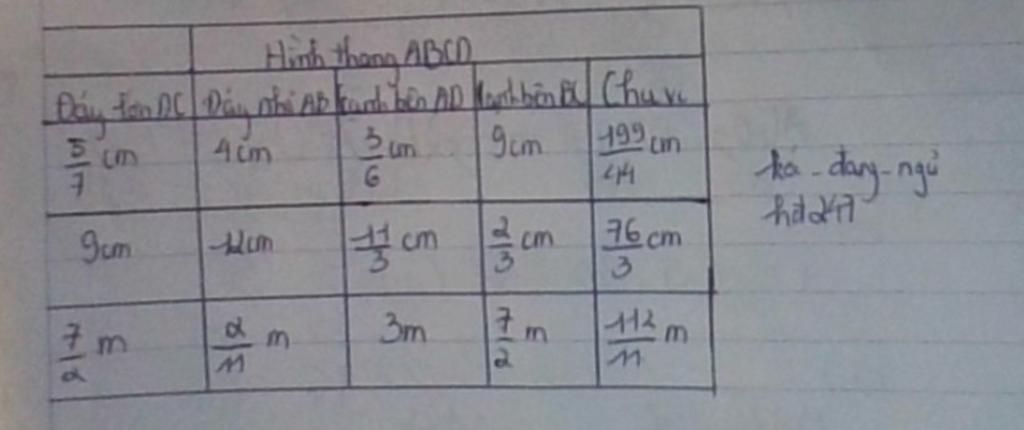 Hình thang ABCD
Đáy lớn DC Đáy nhỏ AB Cạnh bên AD Cạnh bên BC Chu vi
5/7 cm 4cm 3/6 cm 9cm 199/44 cm
9cm 12cm 11/3 cm 2/3 cm 76/3 cm
7/2 m 2/11 m 3m 7/2 m 112/11 m
đang-ngủ